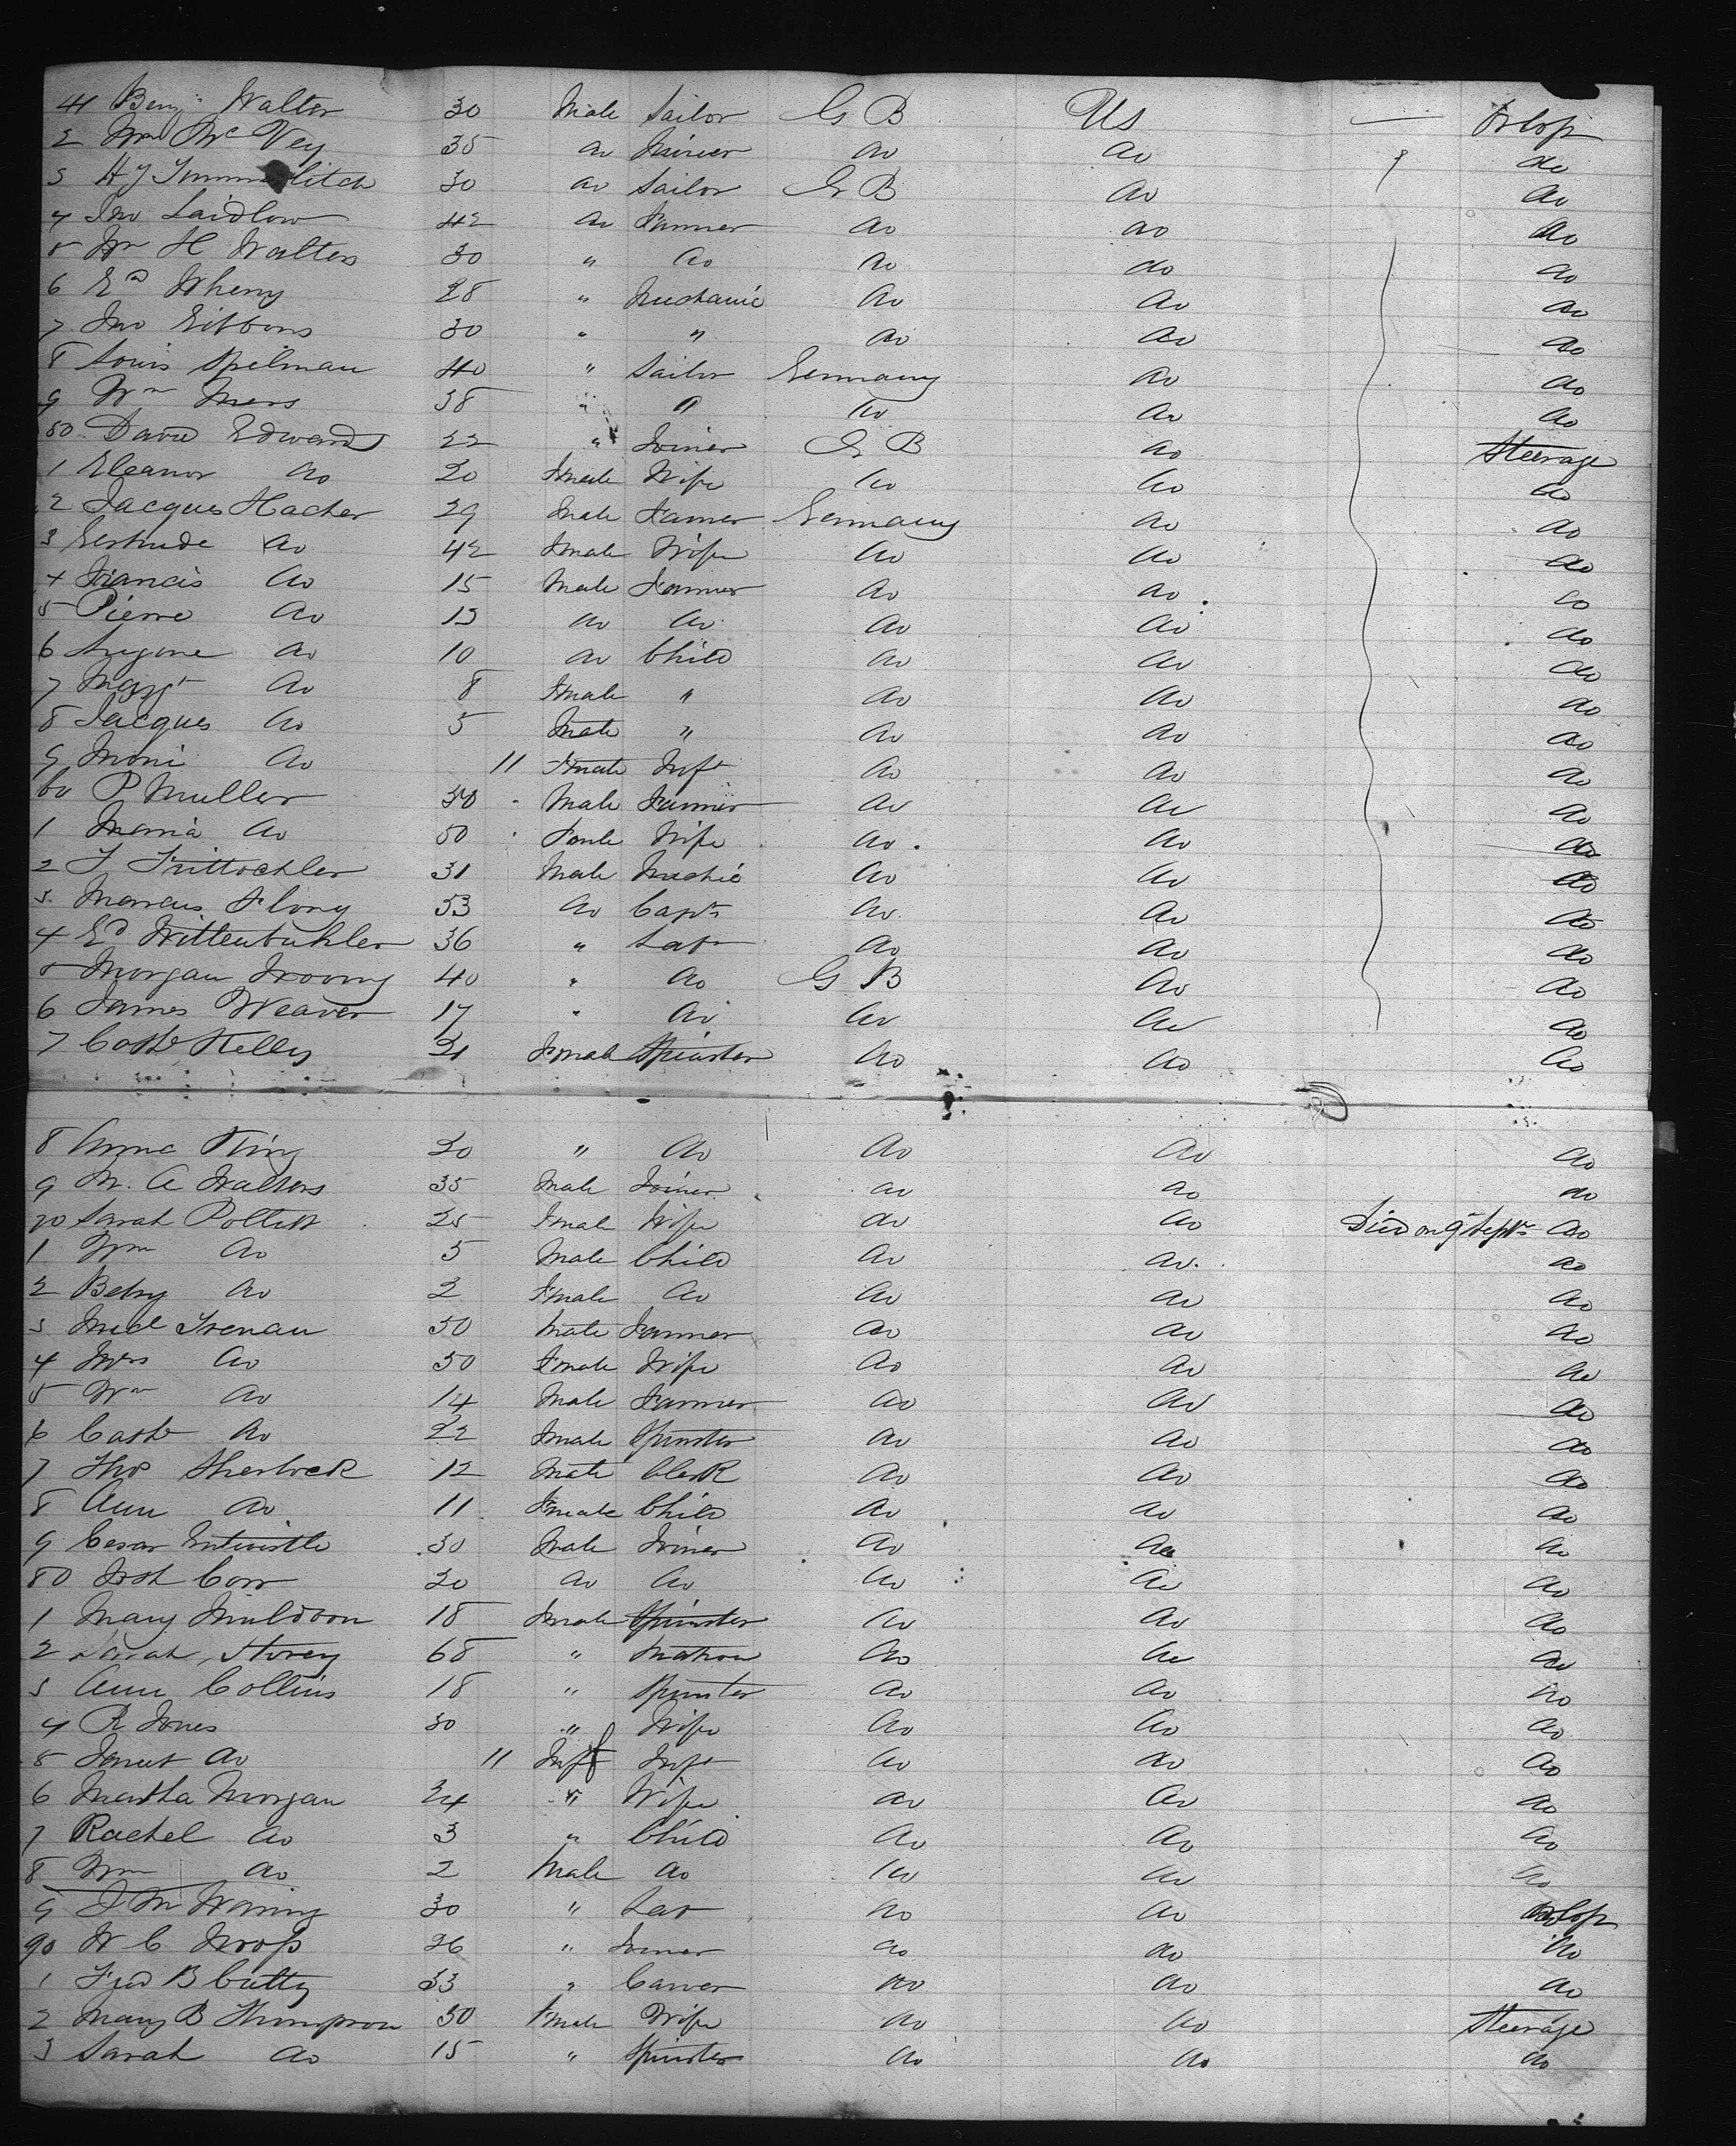 41 Benj. Walter 30 Male Sailor G B US — Orlop
2 Wm Mc Vey 35 do Joiner do do do
3 H J 30 do Sailor G B do do
4 Jno Laidlow 42 do Farmer do do do
5 Wm H Walters 30 " do do do do
6 Ed Wherry 28 " Mechanic do do do
7 Jno Gibbons 30 " " do do do
8 Louis Spilman 40 " Sailor Germany do do
9 Wm Mers 38 " " do do do
50 David Edwards 22 " Joiner G B do Steerage
1 Eleanor do 20 Fmale Wife do do do
2 Jacques Hacher 29 Male Farmer Germany do do
3 Gertrude do 42 Fmale Wife do do do
4 Francis do 15 Male Farmer do do do
5 Pierre do 13 do do do do do
6 do 10 do Child do do do
7 Margt do 8 Fmale " do do do
8 Jacques do 5 Male " do do do
9 do 11 Fmale Inft do do do
60 P Muller Male Farmer do do do
1 Maria do 50 Fmle Wife do do do
2 31 Male Mechic do do do
3 Marcus Flory 53 do Captn do do do
4 Ed Wittenbuhler 36 " Labr do do do
5 Morgan 40 " do G B do do
6 James Weaver 17 " do do do do
7 Cathe Kelly 21 Fmale Spinster do do do
8 Anne King 20 " do do do do
9 W. A Walters 35 Male Joiner do do do
70 Sarah Pollitt 25 Fmale Wife do do Died on 9th Septr do
1 Wm do 5 Male Child do do do
2 Betsy do 2 Fmale do do do do
3 Mich 50 Male Farmer do do do
4 Mrs do 50 Fmale Wife do do do
5 Wm do 14 Male Farmer do do do
6 Cathe do 22 Fmale Spinster do do do
7 Thos Sherlock 12 Male Clerk do do do
8 Ann do 11 Fmale Child do do do
9 Cesar Entwistle 30 Male Joiner do do do
80 Corr 20 do do do do do
1 Mary Muldoon 18 Fmale Spinster do do do
2 Sarah Storey 68 " Matron do do do
3 Ann Collins 18 " Spinster do do do
4 R Jones 30 " Wife do do do
5 Janet do 11 Inft f Inft do do do
6 Martha Morgan 24 " Wife do do do
7 Rachel do 3 " Child do do do
8 Wm do 2 Male do do do do
9 J M Waring 30 " Lab do do Orlop
90 W C 26 " Joiner do do do
1 Fred B Cutty 33 " Carver do do do
2 Mary B Thompson 50 Fmale Wife do do Steerage
3 Sarah do 15 " Spinster do do do